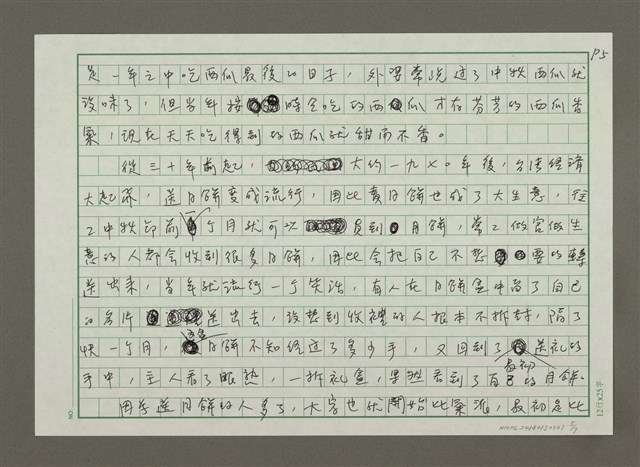 P5
是一年之中吃西瓜最後的日子，外婆常說過了中秋西瓜就
沒味了，但當年接時令吃的西瓜才有芬芳的西瓜香
氣，現在天天吃得到的西瓜就甜而不香。
從三十年前起，大約一九七〇年後，台灣經濟
大起飛，送月餅變成流行，因此賣月餅也成了大生意，往
中秋節前一個月就可以買到月餅，當做官做生
意的人都會收到很多月餅，因此會把自己不想要的轉
送出來，當年就流行一個笑話，有人在月餅盒中寫了自己
的名片送出去，沒想到收禮的人根本不拆封，隔了
快一個月，這盒月餅不知經過了多少手，又回到了最初送禮的
手中，主人看了眼熟，一拆禮盒，果然看到了自己的月餅。
因為送月餅的人多了，大家也就開始比氣派，最初是比
12行×25字